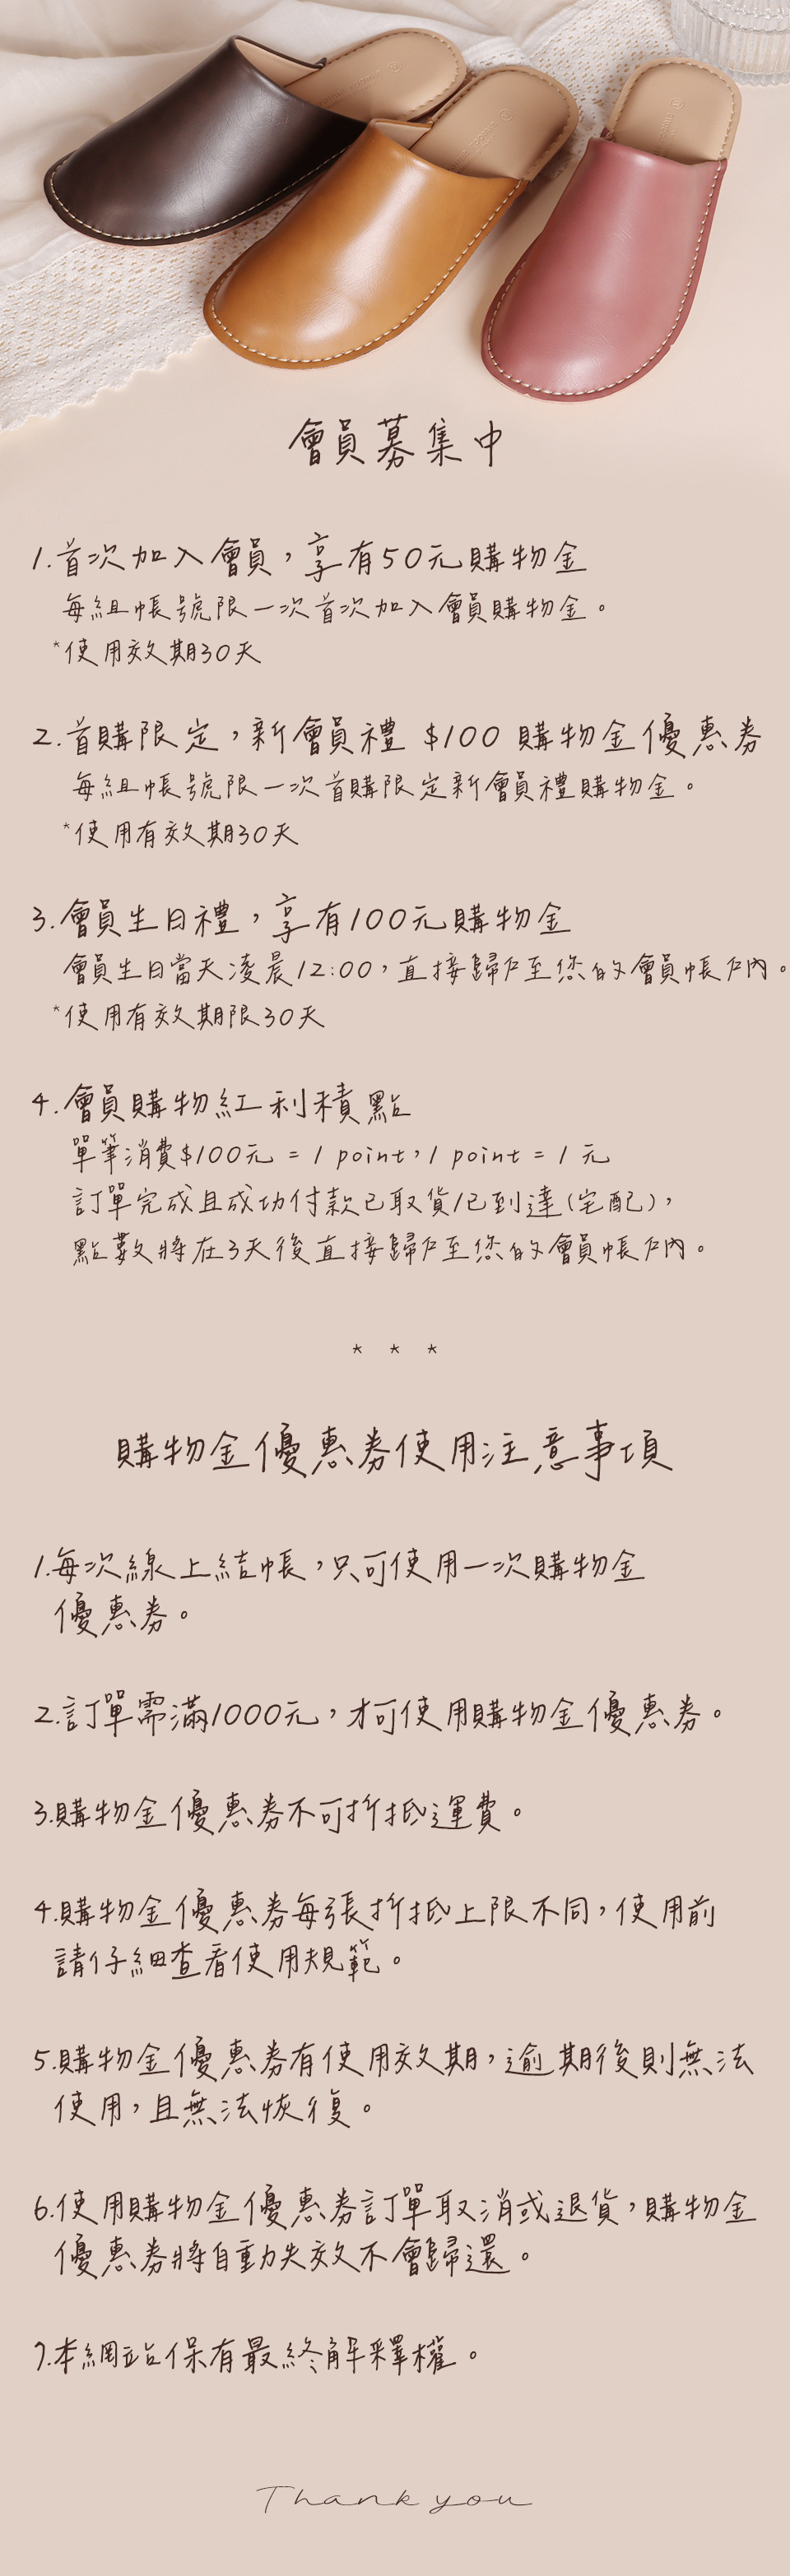 會員募集中
1.首次加入會員，享有50元購物金
每組帳號限一次首次加入會員購物金。
*使用效期30天
2.首購限定，新會員禮 $100 購物金優惠券
每組帳號限一次首購限定新會員禮購物金。
*使用有效期30天
3.會員生日禮，享有100元購物金
會員生日當天凌晨12:00，直接歸戶至您的會員帳戶內。
*使用有效期限30天
4.會員購物紅利積點
單筆消費$100元 = 1 point，1 point = 1 元
訂單完成且成功付款已取貨/已到達(宅配)，
點數將在3天後直接歸戶至您的會員帳戶內。
* * *
購物金優惠券使用注意事項
1.每次線上結帳，只可使用一次購物金
優惠券。
2.訂單需滿1000元，才可使用購物金優惠券。
3.購物金優惠券不可折抵運費。
4.購物金優惠券每張折抵上限不同，使用前
請仔細查看使用規範。
5.購物金優惠券有使用效期，逾期後則無法
使用，且無法恢復。
6.使用購物金優惠券訂單取消或退貨，購物金
優惠券將自動失效不會歸還。
7.本網站保有最終解釋權。
Thank you